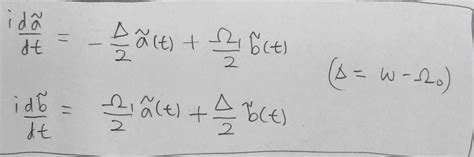 i dã/dt = - Δ/2 ã(t) + Ω₁/2 b̃(t)
(Δ = ω - Ω₀)
i db̃/dt = Ω₁/2 ã(t) + Δ/2 b̃(t)